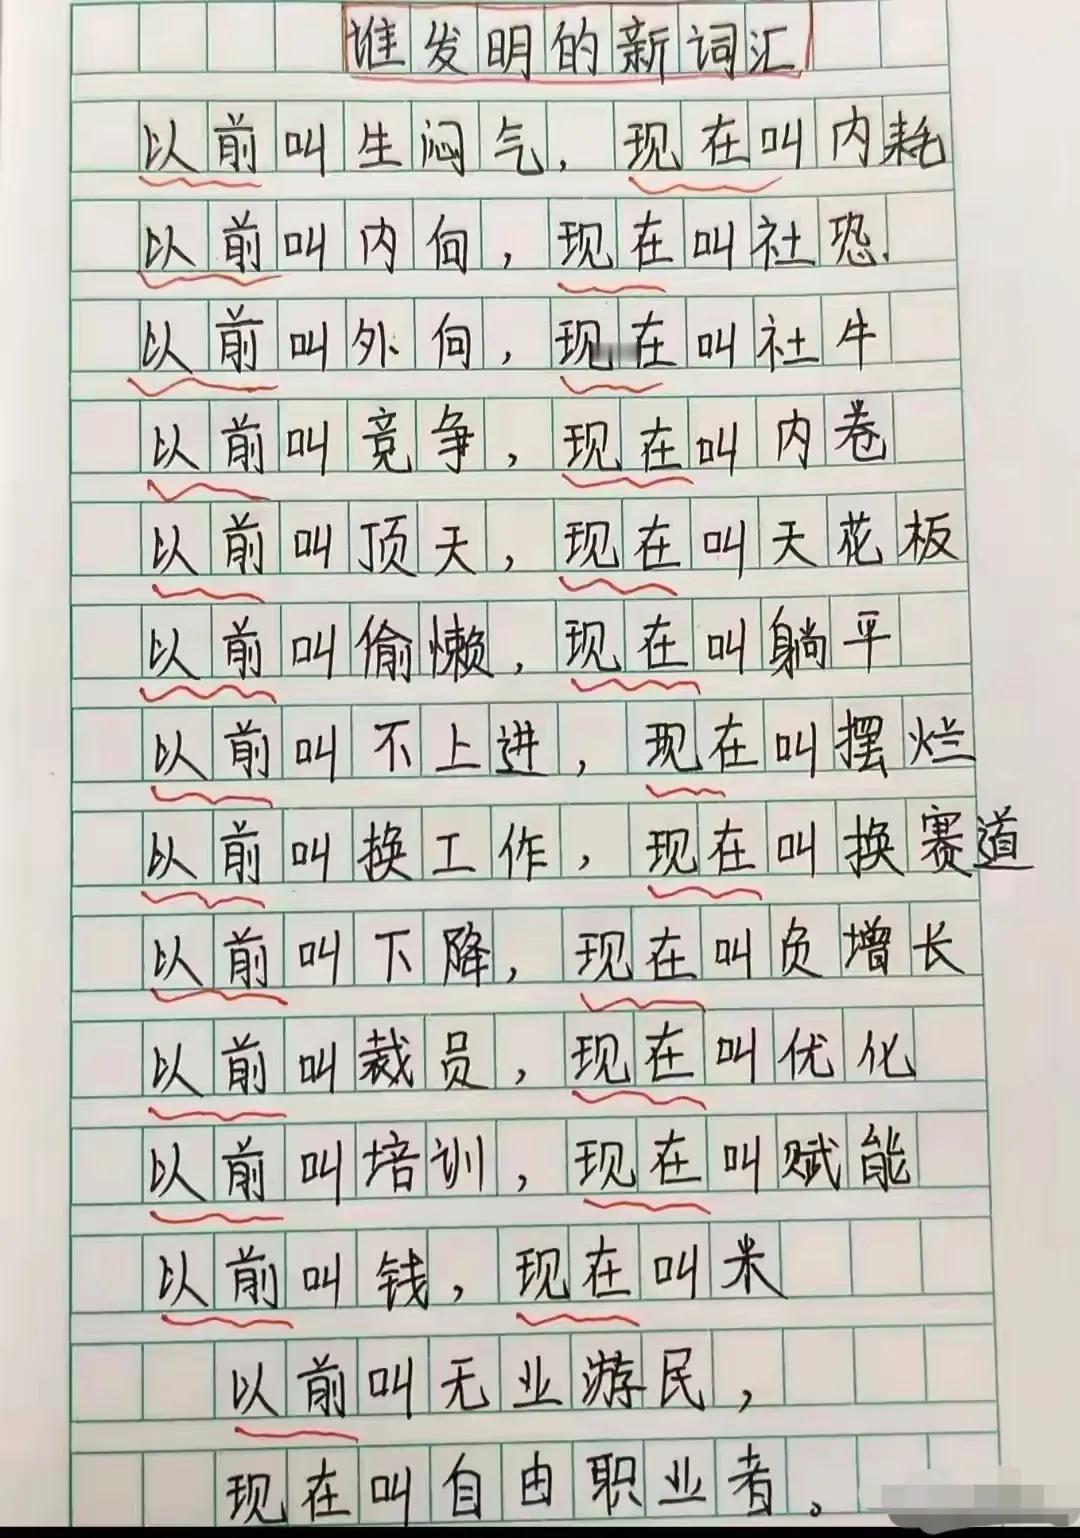 谁发明的新词汇
以前叫生闷气，现在叫内耗
以前叫内向，现在叫社恐.
以前叫外向，现在叫社牛
以前叫竞争，现在叫内卷
以前叫顶天，现在叫天花板
以前叫偷懒，现在叫躺平
以前叫不上进，现在叫摆烂
以前叫换工作，现在叫换赛道
以前叫下降，现在叫负增长
以前叫裁员，现在叫优化
以前叫培训，现在叫赋能
以前叫钱，现在叫米
以前叫无业游民，
现在叫自由职业者。